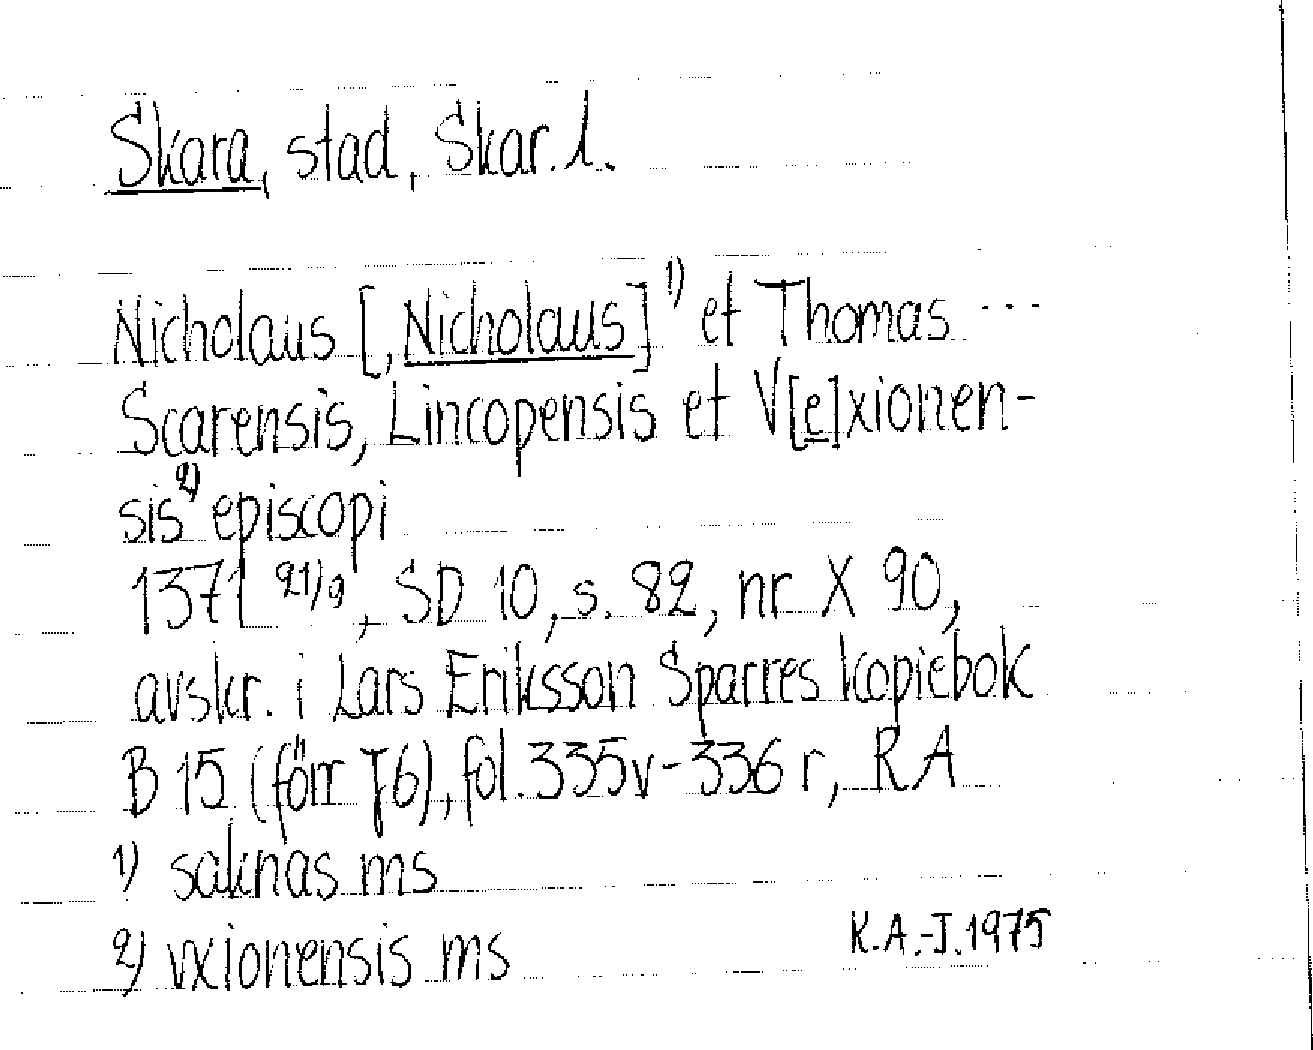 Skara, stad, Skar. l.
Nicholaus [, Nicholaus]¹⁾ et Thomas ...
Scarensis, Lincopensis et V[e]xionen-
sis²⁾ episcopi
1371 21/9, SD 10, s. 82, nr X 90,
avskr. i Lars Eriksson Sparres kopiebok
B 15 (förr J6), fol. 335v-336 r, RA
1) saknas ms
2) vxionensis ms
K.A.-J. 1975